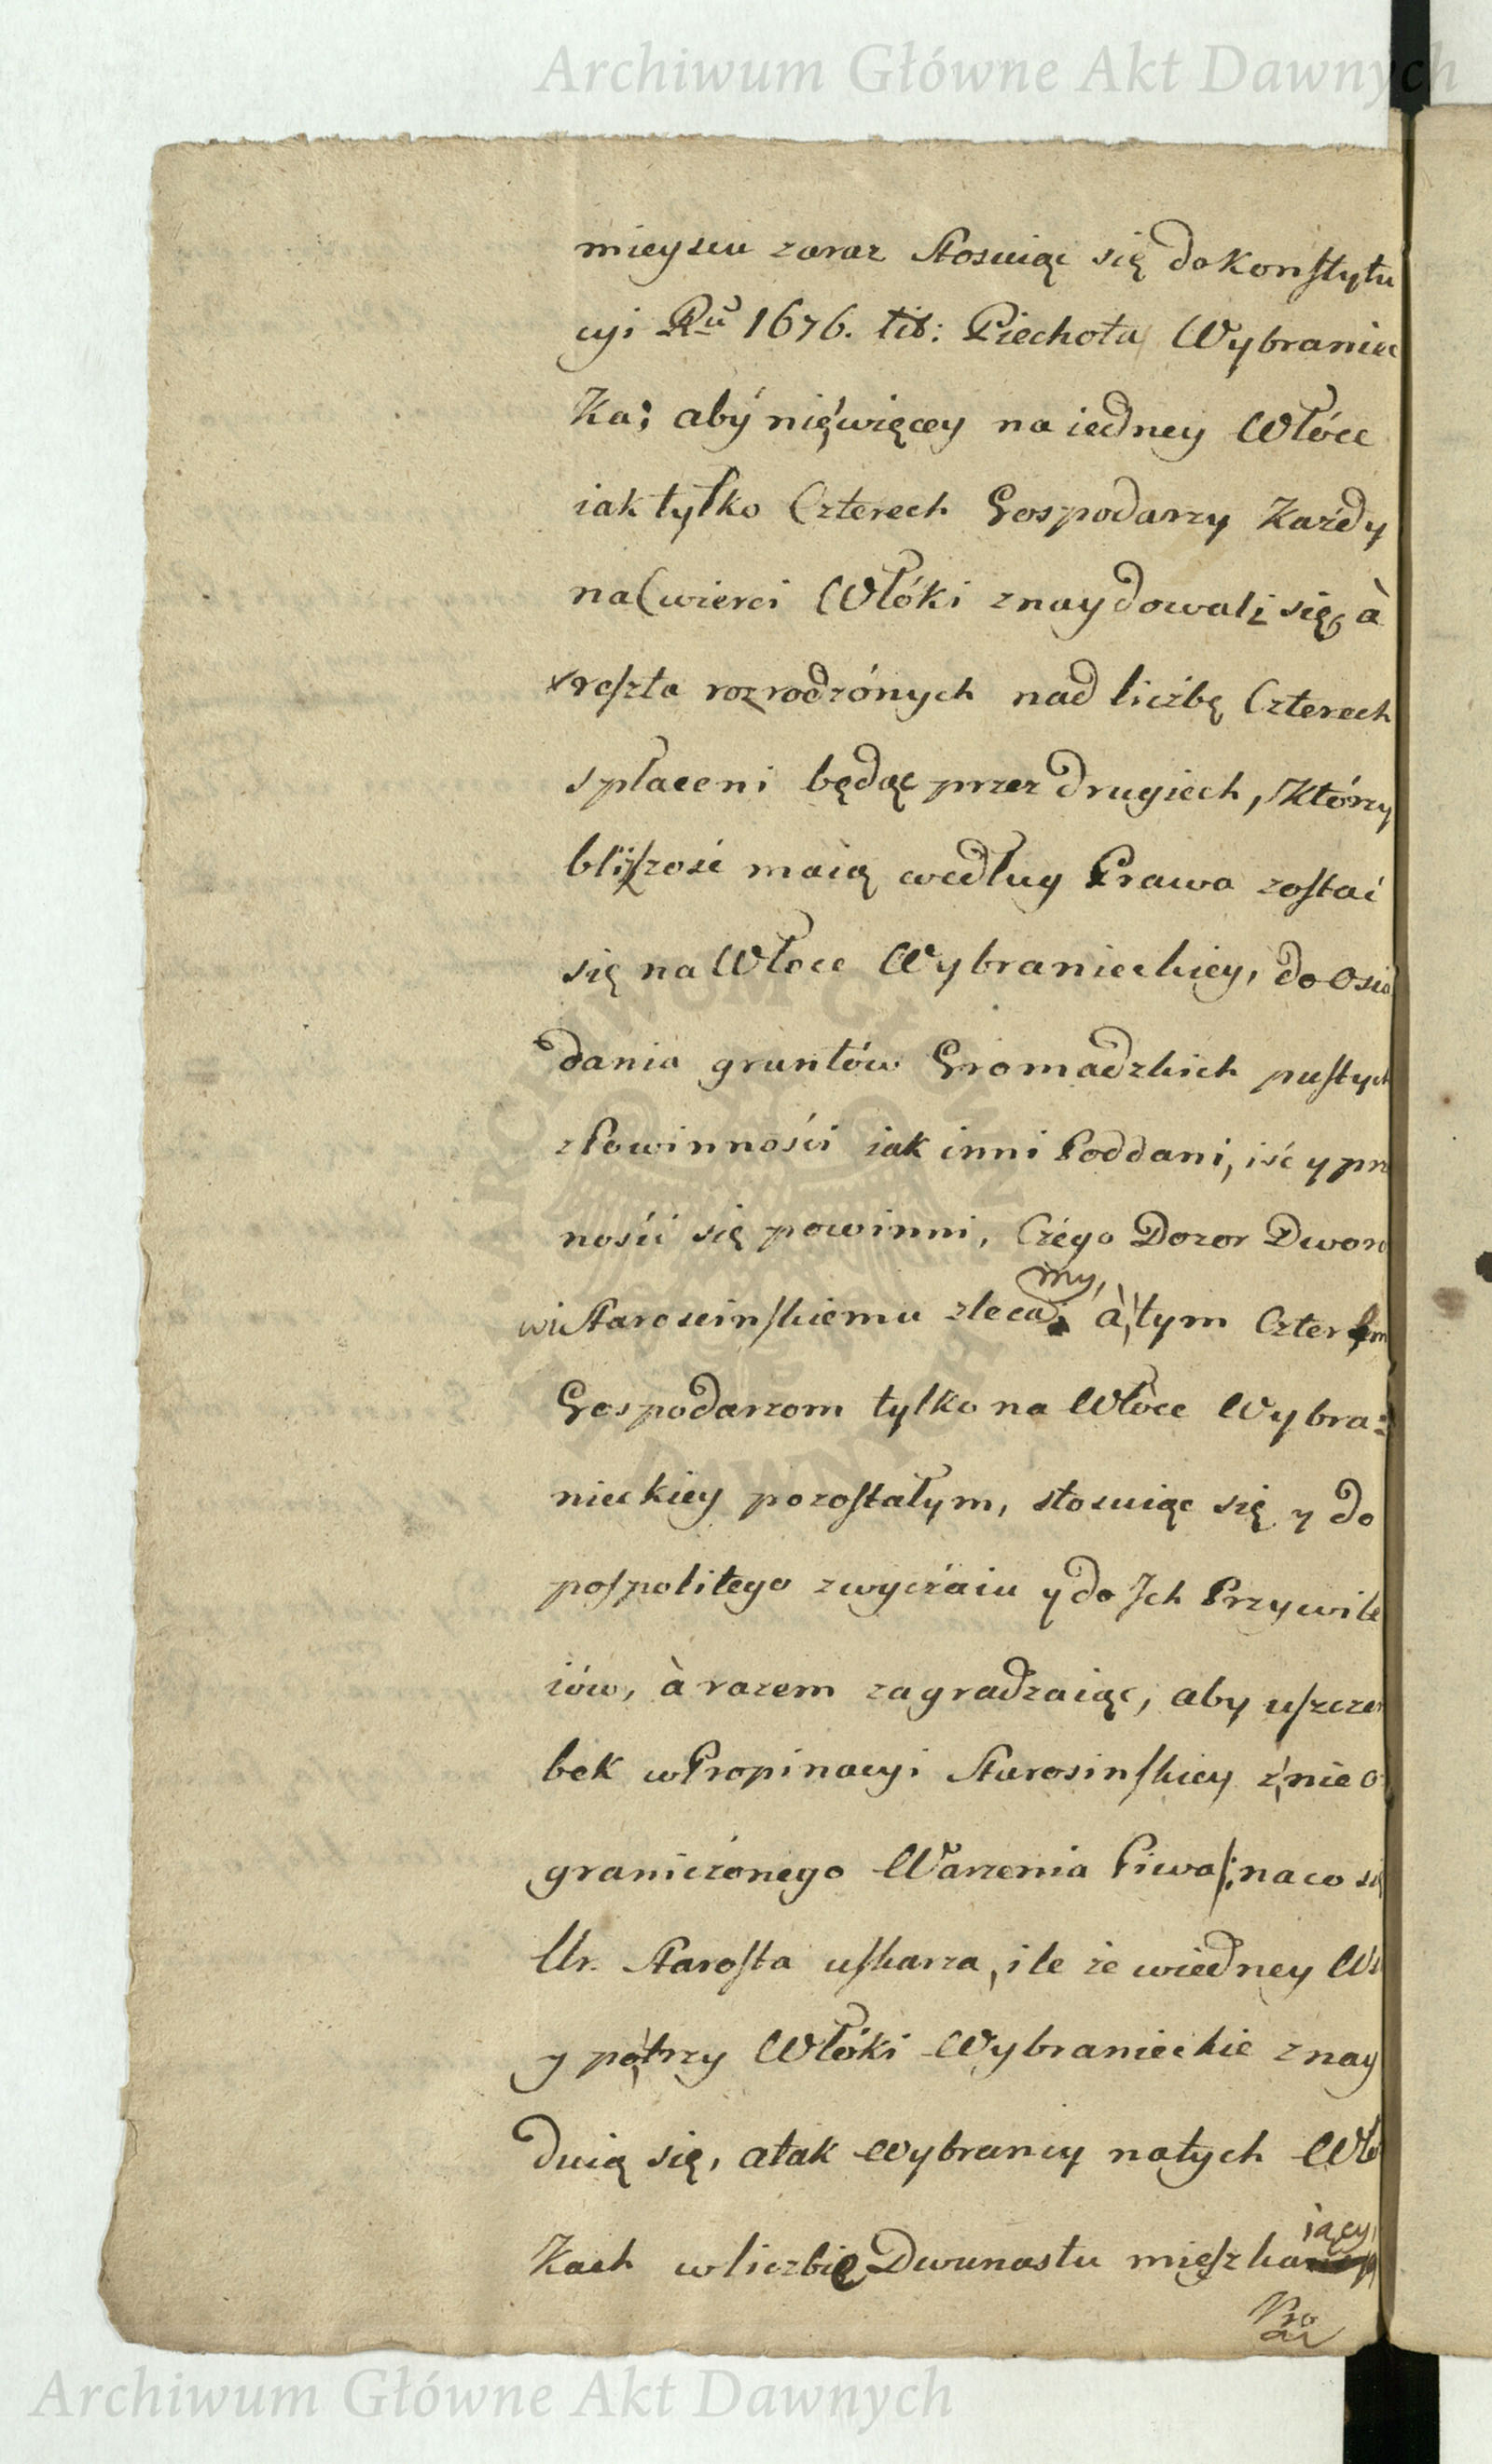 Archiwum Główne Akt Dawnych
mieyscu zaraz stosuiąc się do Konstytu
cyi Rū 1676. tit: Piechota Wybraniec
Ka; aby nie więcey na iedney Włóce
iak tylko Czterech Gospodarzy Każdy
na Cwierci Włóki znaydowali się, à
reszta rozrodzónych nad liczbę Czterech
spłaceni będąc przez drugiech, Którzy
bliszość maią według Prawa zostać
się na Włoce Wybranieckiey, do Osia
dania gruntów Gromadzkich pustych
z Powinności iak inni Poddani, iść y prze
nosić się powinni, Czego Dozor Dworo
wi Staroscinskiemu zlecamy, à tym Czterem
Gospodarzom tylko na Włoce Wybra:
nieckiey pozostałym, stosuiąc się y do
pospolitego zwyczaiu y do Jch Przywile
iów, à razem zagradzaiąc, aby uszczer
bek w Propinacyi Starosinskiey z nie o
graniczonego Warzenia Piwa /: na co się
Ur. Starosta uskarza, ile że w iedney Wsi
y po trzy Włóki Wybranieckie znay
duią się, a tak Wybrancy na tych Wło
Kach w liczbie Dwunastu mieszkaiący,
ARCHIWUM GŁÓWNE AKT DAWNYCH
Archiwum Główne Akt Dawnych